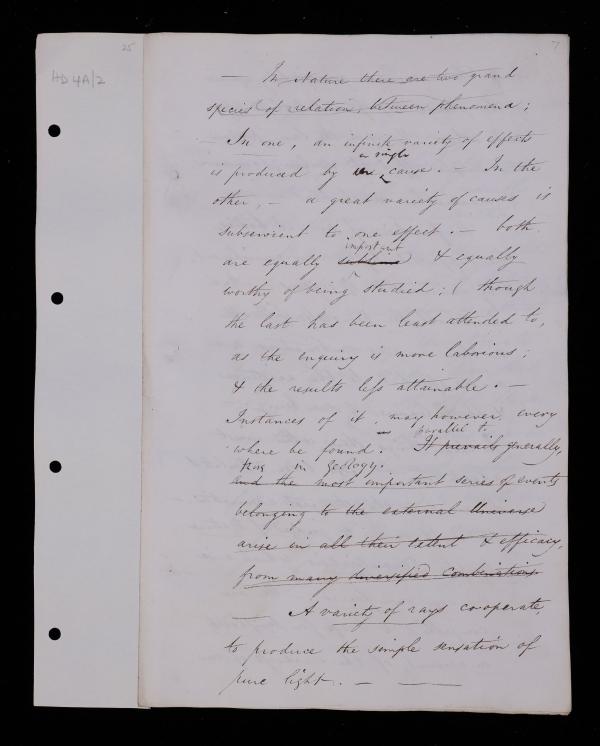 25
7
HD 4A/2
— In Nature there are two grand
species of relation, between phenomena;
— In one, an infinite variety of effects
a single
is produced by one cause. — In the
other, — a great variety of causes is
subservient to one effect. — both
important
are equally sublime & equally
worthy of being studied; (though
the last has been least attended to,
as the enquiry is more laborious;
& the results less attainable. —
Instances of it, may however, every
parallel to
where be found. It prevails generally,
in Geology.
and the most important series of events
belonging to the external Universe
arise in all their extent & efficacy,
from many diversified combinations.
— A variety of rays cooperate,
to produce the simple sensation of
pure light. — —